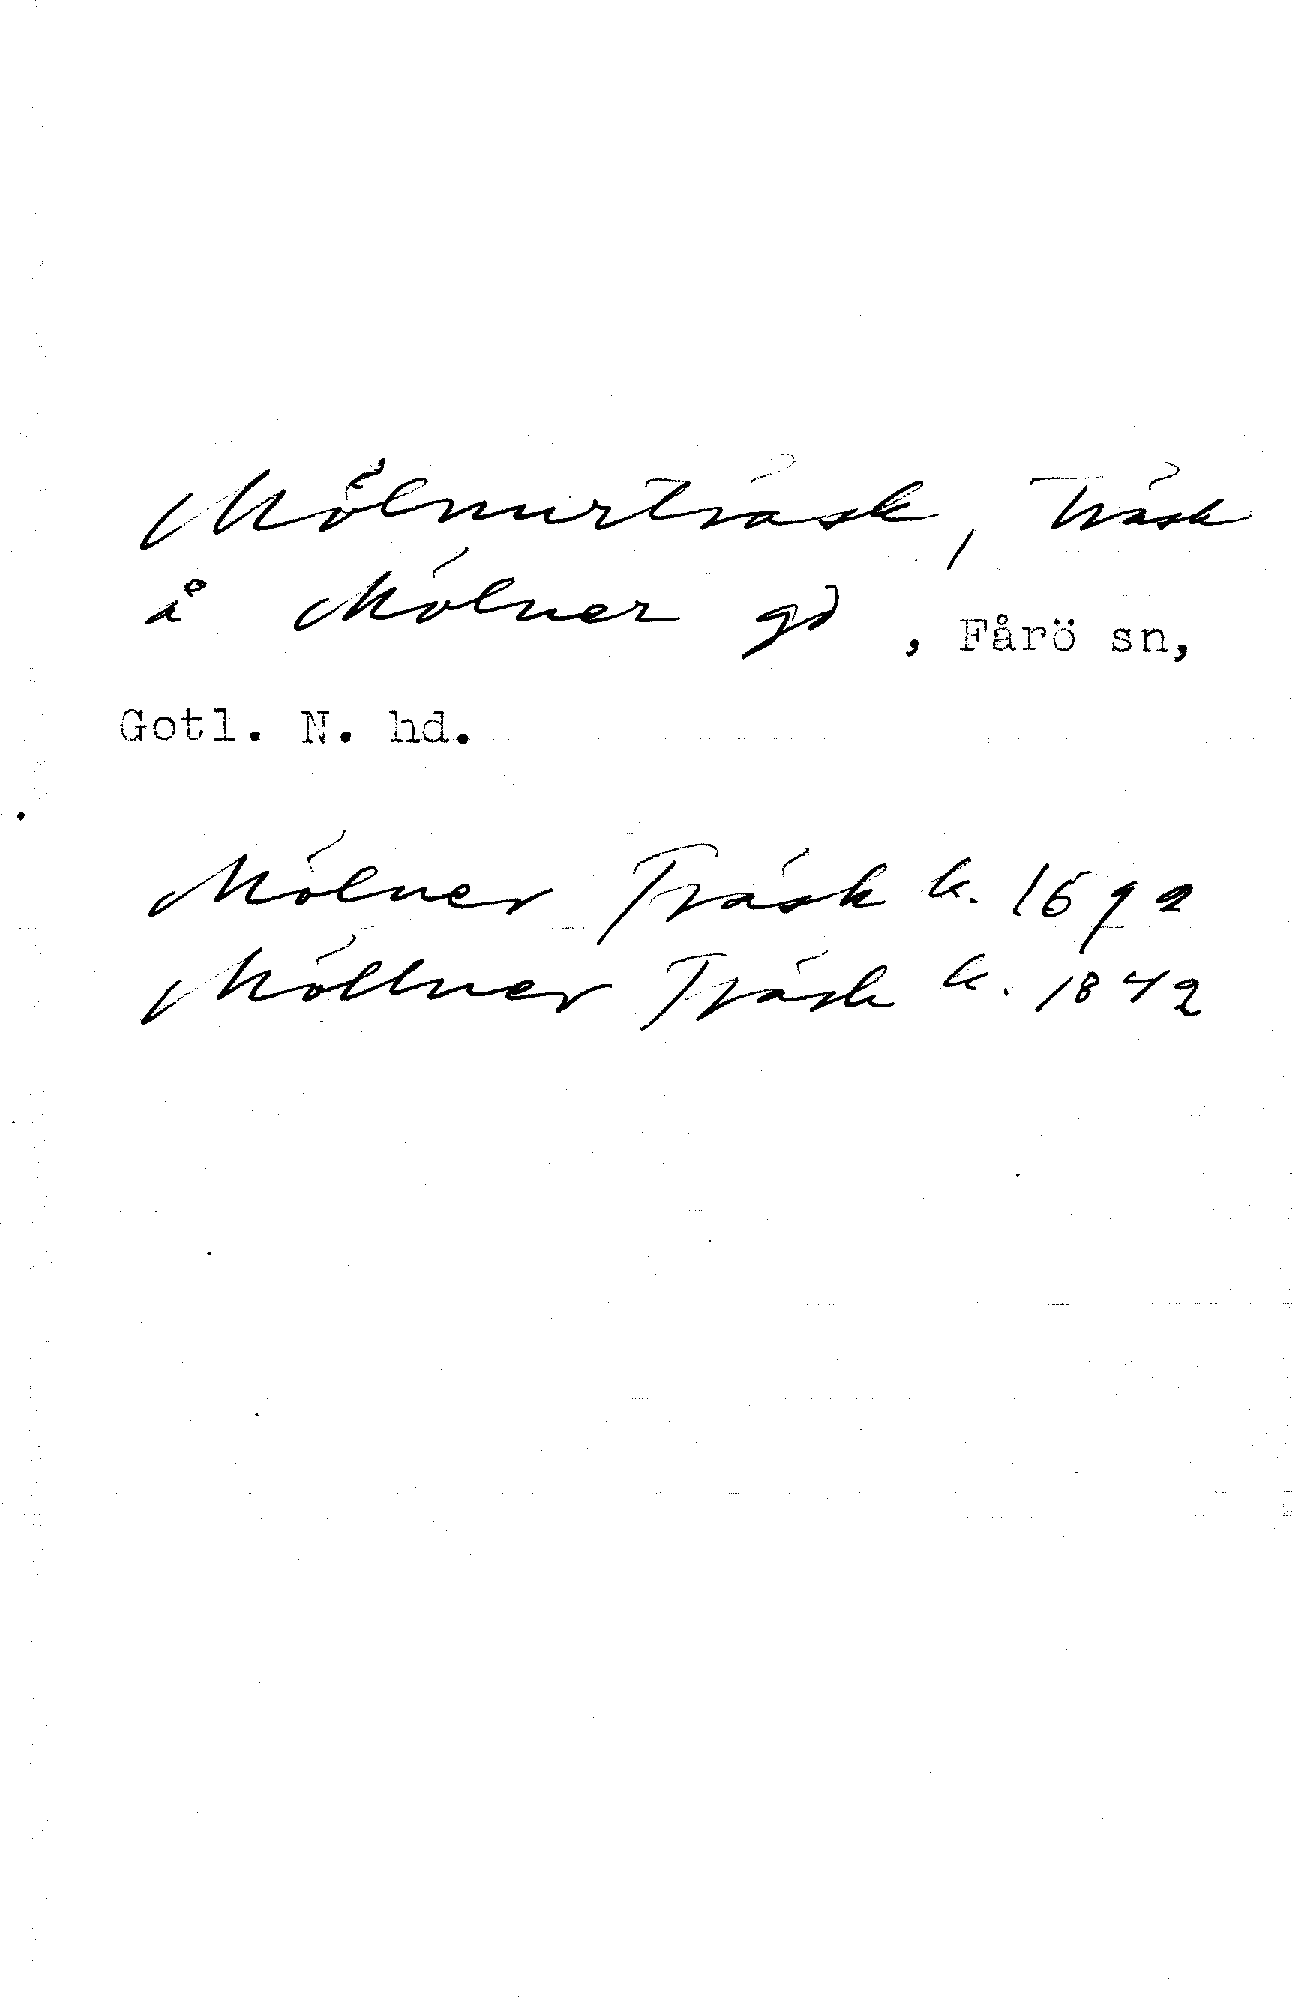 Mölnurträsk, träsk
å Mölner gd, Fårö sn,
Gotl. N. hd.
Mölner Träsk k. 1692
Möllner Träsk k. 1842